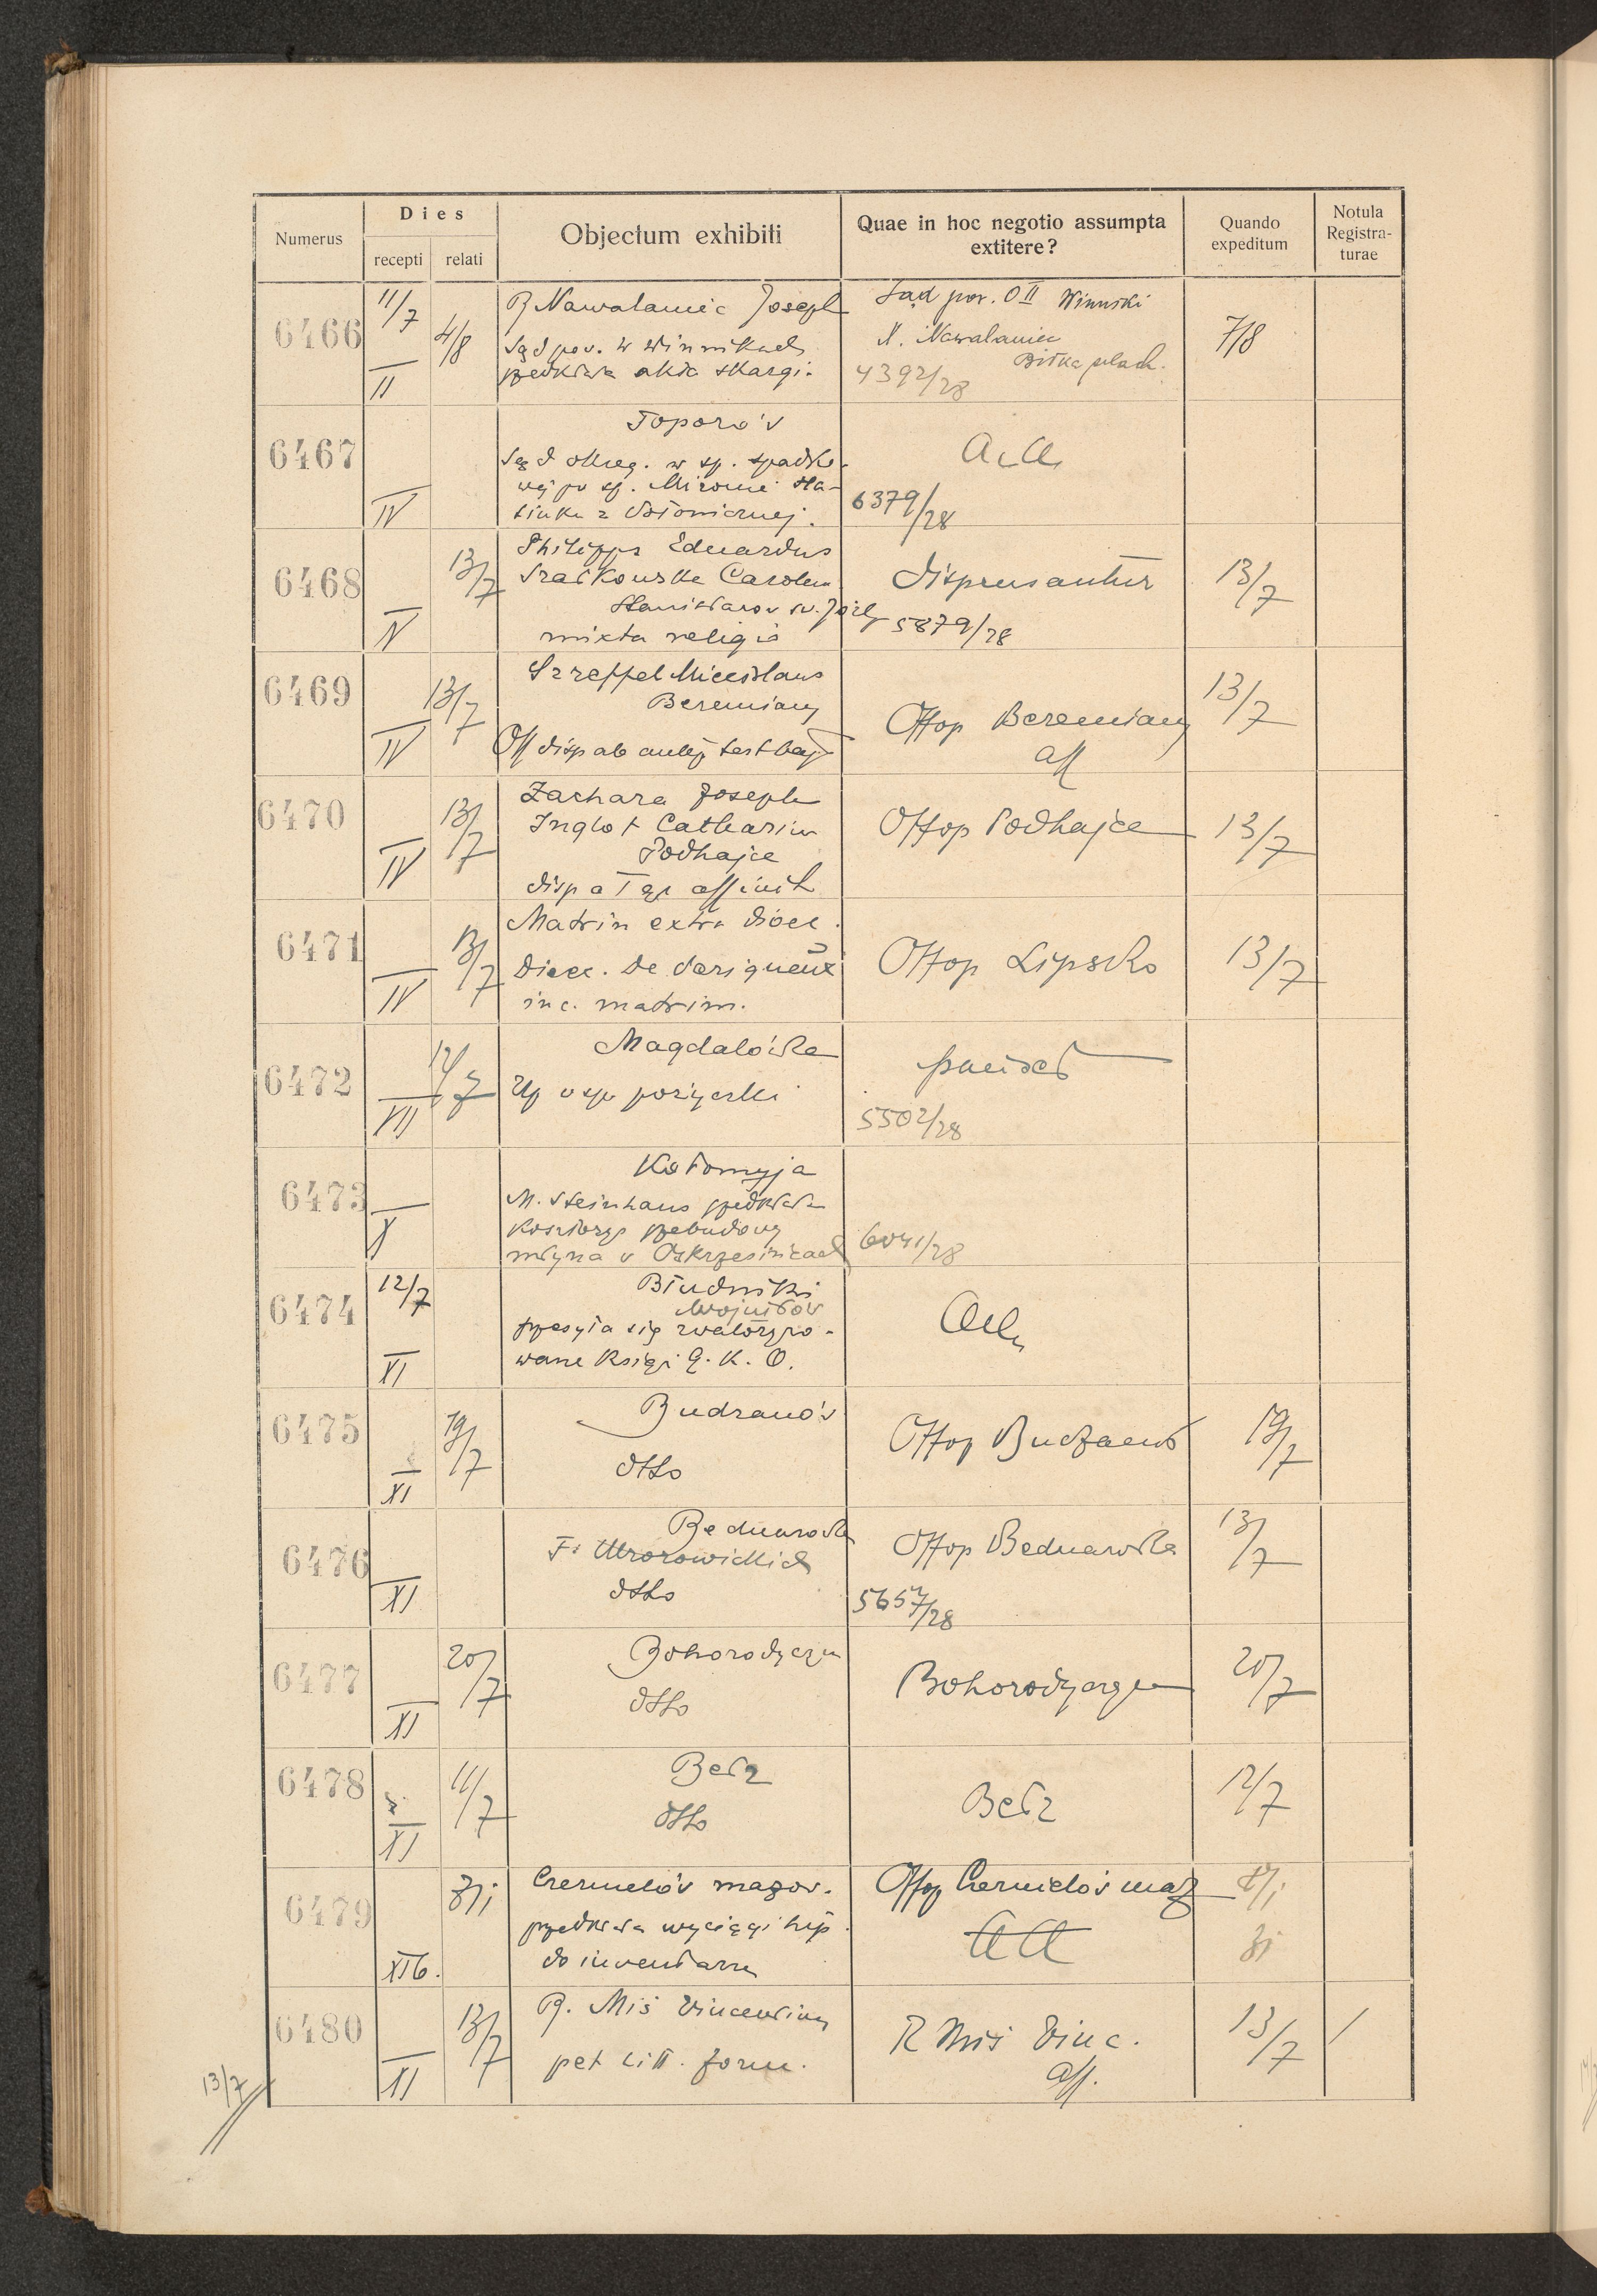 Numerus
Dies
recepti
relati
Objectum exhibiti
Quae in hoc negotio assumpta
extitere?
Quando
expeditum
Notula
Registra-
turae
6466
11/7
II
4/8
R Nawalaniec Joseph
Sąd pow. w Winnikach
przedkłada akta skargi.
Sąd pow. O II Winniki
X. Nawalaniec
Biłka szlach.
4392/28
7/8
6467
IV
Toporów
Sąd okręg. w sp. spadko-
wej po sp.
z
6379/28
6468
IV
13/7
Philipps Eduardus
Carolina
Stanisławów
mixta religio
dispensantur
5879/28
13/7
6469
IV
13/7
Miecislaus
Beremiany
Off disp ab
Offop Beremiany
aff
13/7
6470
IV
13/7
Zachara Joseph
Inglot Catharina
Podhajce
disp a I gr affinit
Offop Podhajce
13/7
6471
IV
13/7
Matrim extra dioec.
Dioec. De
inc. matrim.
Offop Lipsko
13/7
6472
VII
12/7
Magdalówka
Up w sp. pożyczki
5502/28
6473
X
Kołomyja
M. Steinhaus przedkłada
kosztorys przebudowy
młyna w Oskrzesińcach
6041/28
6474
12/7
XI
Błudniki
Wojniłów
przesyła się
wane Księgi G. K. O.
6475
XI
19/7
Budzanów
dtto
Offop
19/7
6476
XI
Bednarówka
F.
dtto
Offop Bednarówka
5657/28
13/7
6477
XI
20/7
Bohorodczan
dtto
Bohorodczan
20/7
6478
XI
11/7
Bełz
dtto
Bełz
12/7
6479
XI b.
Czernielów mazow.
przedkłada wyciągi hip.
do inwentarza
Offop Czernielów maz
6480
XI
13/7
R. Miś Vincentius
pet litt. form.
R Miś Vinc.
aff.
13/7
/
13/7